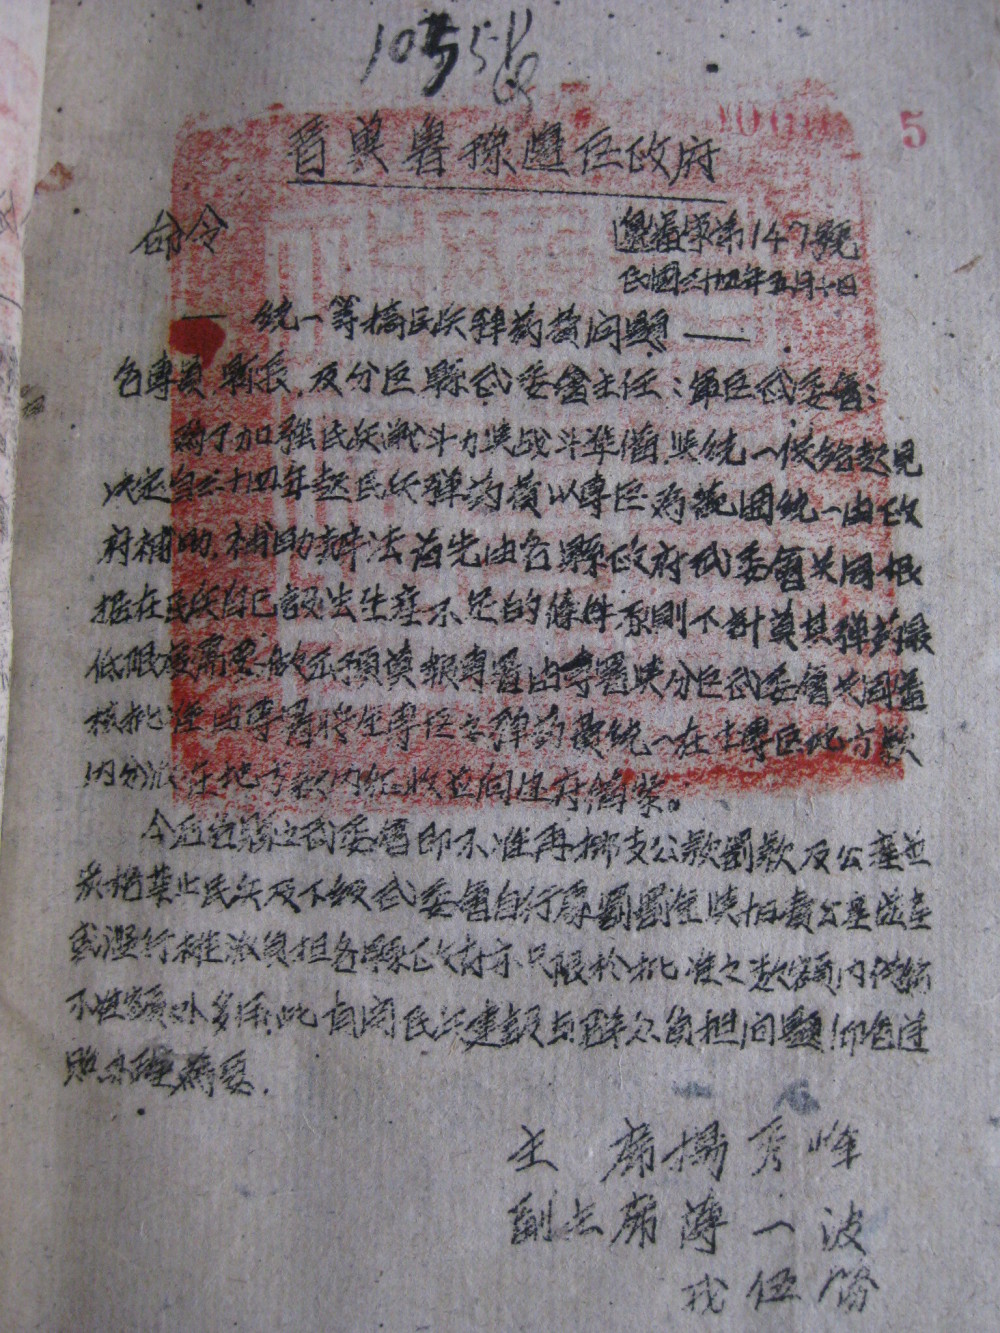 10551
5
晋冀魯豫邊區政府
命令
邊署字第147號
民國三十四年五月一日
— 統一籌措民兵彈药費问題 —
各專員、縣長、及分區縣武委會主任；軍區武委會：
為了加強民兵战斗力與战斗準備，與統一供給起見
决定自三十四年起民兵彈药費以專區為範圍統一由政
府補助，補助辦法首先由各縣政府武委會共同根
据在民兵自己設法生產不足的條件原則下計算其彈药最
低限度需要做出預算報專署由專署與分區武委會共同審
核批准由專署將全專區之彈药費統一在本專區地方款
内分派在地方款内征收並向边府備案。
今后各縣之武委會即不准再挪支公款罰款及公產並
嚴格禁止民兵及下級武委會自行處罰
或濫行摊派負担各縣政府亦只限於批准之数額内供給
不准額外多用，此有関民兵建設与群众負担问題仰各遵
照办理為要。
主席楊秀峰
副主席薄一波
戎伍勝